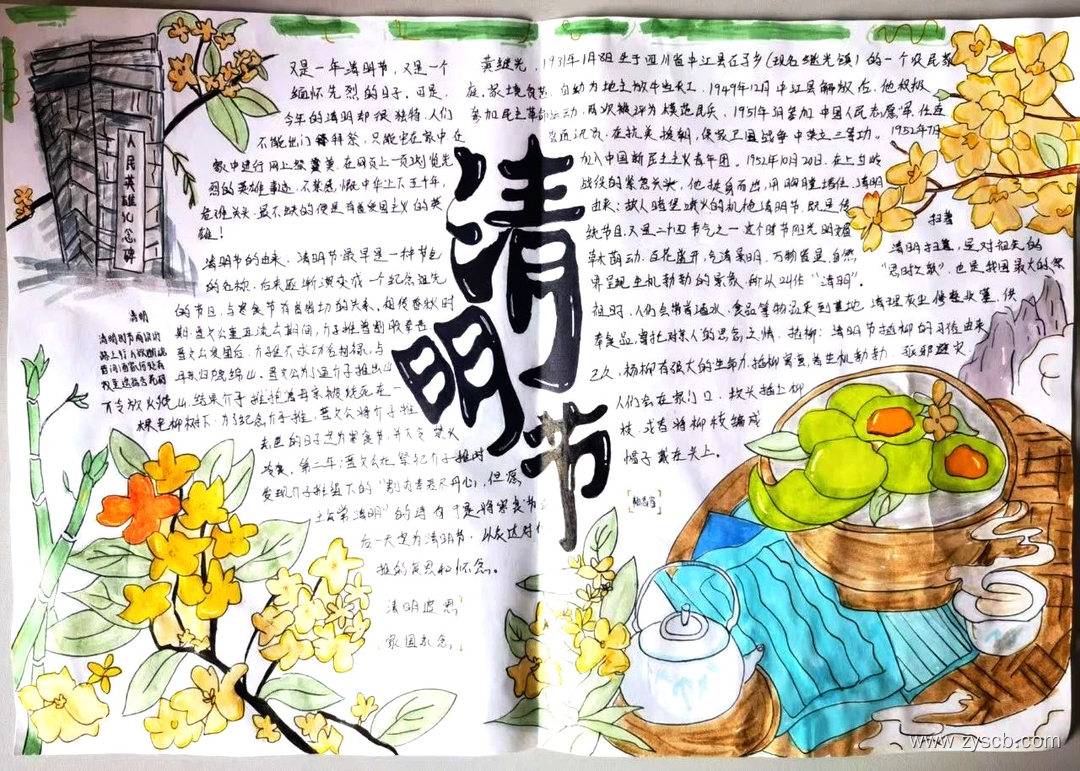 清明节
人民英雄纪念碑
又是一年清明节，又是一个
缅怀先烈的日子。可是，
今年的清明却很独特，人们
不能出门 拜祭，只能宅在家中在
家中进行网上祭奠，在网页上一页 先
烈的英雄事迹，不禁感慨中华上下五千年，
危难关头，最不缺的便是有着爱国主义的英
雄！
清明节的由来：清明节最早是一种节气
的名称，后来逐渐演变成一个纪念祖先
的节日，与寒食节有着密切的关系，相传春秋时
期，晋文公重耳流亡期间，介子推曾割股奉君
晋文公复国后，介子推不求功名利禄，与
母亲归隐绵山，晋文公为了逼介子推出山
下令放火烧山，结果介子推抱着母亲被烧死在一
棵老柳树下，为了纪念介子推，晋文公将介子推
去世的日子定为寒食节，并下令禁火
冷食，第二年，晋文公在祭祀介子推时
发现介子推留下的“割肉奉君尽丹心，但愿
主公常清明”的诗句
后一天定为清明节，以表达对介子
推的哀思和怀念。
清明追思
家国永念
清明
清明时节雨纷纷
路上行人欲断魂
借问酒家何处有
牧童遥指杏花村
黄继光，1931年1月8日生于四川省中江县石马乡（现名继光镇）的一个农民家
庭，家境贫苦，自幼为地主放牛当长工，1949年12月中江县解放后，他积极
参加民主革命运动，两次被评为模范民兵，1951年3月参加中国人民志愿军，任连
部通讯员，在抗美援朝，保家卫国战争中荣立三等功。1952年7月
加入中国新民主主义青年团。1952年10月20日，在上甘岭
战役的紧急关头，他挺身而出，用胸膛堵住 清明
由来：敌人暗堡喷火的机枪清明节，既是传
统节日，又是二十四节气之一这个时节阳光明媚
草木萌动，百花盛开，气清景明，万物皆显，自然
界呈现生机勃勃的景象，所以叫作“清明”。
扫墓
清明扫墓，是对祖先的
“思时之敬”，也是我国最大的祭
祖时，人们会带着酒水、食品等物品来到墓地，清理灰尘修整坟墓，供
奉食品，寄托对亲人的思念之情，插柳：清明节插柳的习俗由来
已久，杨柳有很大的生命力，插柳寓意着生机勃勃，驱邪避灾
人们会在家门口，坟头插上柳
枝，或者将柳枝编成
帽子戴在头上。
www.zyscb.com